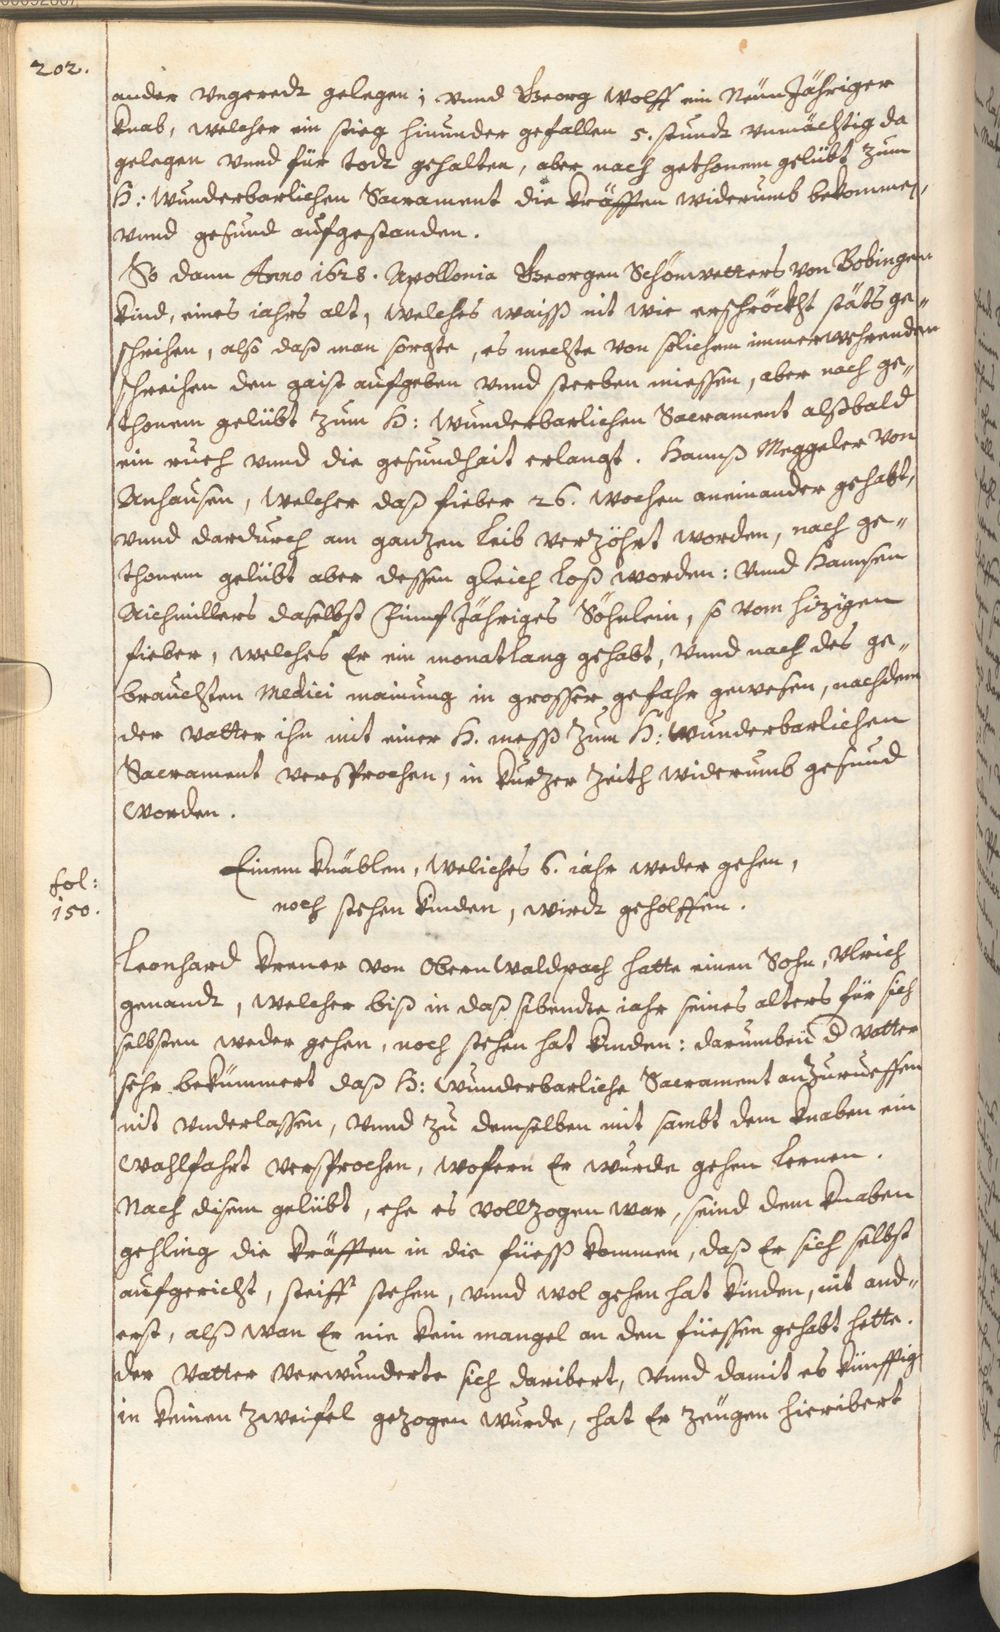 202.
ander ungeredt gelegen; vnnd Georg Wolff ein Neün Jähriger
knab, welcher ein stieg hinunder gefallen 5. stundt vnmächtig da
gelegen vnnd für todt gehalten, aber nach gethonem gelübt zum
H: Wunderbarlichen Sacrament die kräfften widerumb bekommen,
vnnd gesund aufgestanden.
So dann Anno 1628. Apollonia Georgen Schönwetters von Bobingen
kind, eines iahrs alt, welches waiß nit wie erschröckht stäts ge-
schrihen, also daß man sorgte, es mechte von solichem immerwehrenden
schreihen den gaist aufgeben vnnd sterben miessen, aber nach ge-
thonem gelübt zum H: Wunderbarlichen Sacrament alßbald
ein ruch vnnd die gesundhait erlangt. Hannß Meggeler von
Anhausen, welcher daß fieber 26. wochen aneinander gehabt,
vnnd dardurch am ganzen leib verzöhrt worden, nach ge-
thonem gelübt aber dessen gleich loß worden: Vnnd Hannsen
Aichmillers daselbst fünf Jähriges Söhnlein, so vom hizigen
fieber, welches Er ein monatlang gehabt, vnnd nach des ge-
brauchten Medici mainung in grosser gefahr gewesen, nachdem
der vatter ihn mit einer H. meß zum H: Wunderbarlichen
Sacrament versprochen, in kurtzer Zeith widerumb gesund
worden.
fol:
150.
Einem knäblen, weliches 6. iahr weder gehen,
noch stehen kinden, wirdt geholffen.
Leonhard Krener von Obern Waldpach hatte einen Sohn, Vlrich
genandt, welcher biß in daß sibendte iahr seines alters für sich
selbsten weder gehen, noch stehen hat kinden: darumben d vatter
sehr bekümmert daß H: Wunderbarliche Sacrament anzurueffen
nit vnderlassen, vnnd zu demselben mit sambt dem knaben ein
Wahlfahrt versprochen, wofern Er wurde gehen lernen.
Nach disem gelübt, ehe es vollzogen war, seind dem knaben
gehling die kräfften in die füeß kommen, daß Er sich selbst
aufgericht, steiff stehen, vnnd wol gehen hat kinden, nit and-
erst, alß wan Er nie kein mangel an den füessen gehabt hette.
der vatter verwunderte sich daribert, vnnd damit es künfftig
in keinen zweifel gezogen wurde, hat Er zeugen hieribert